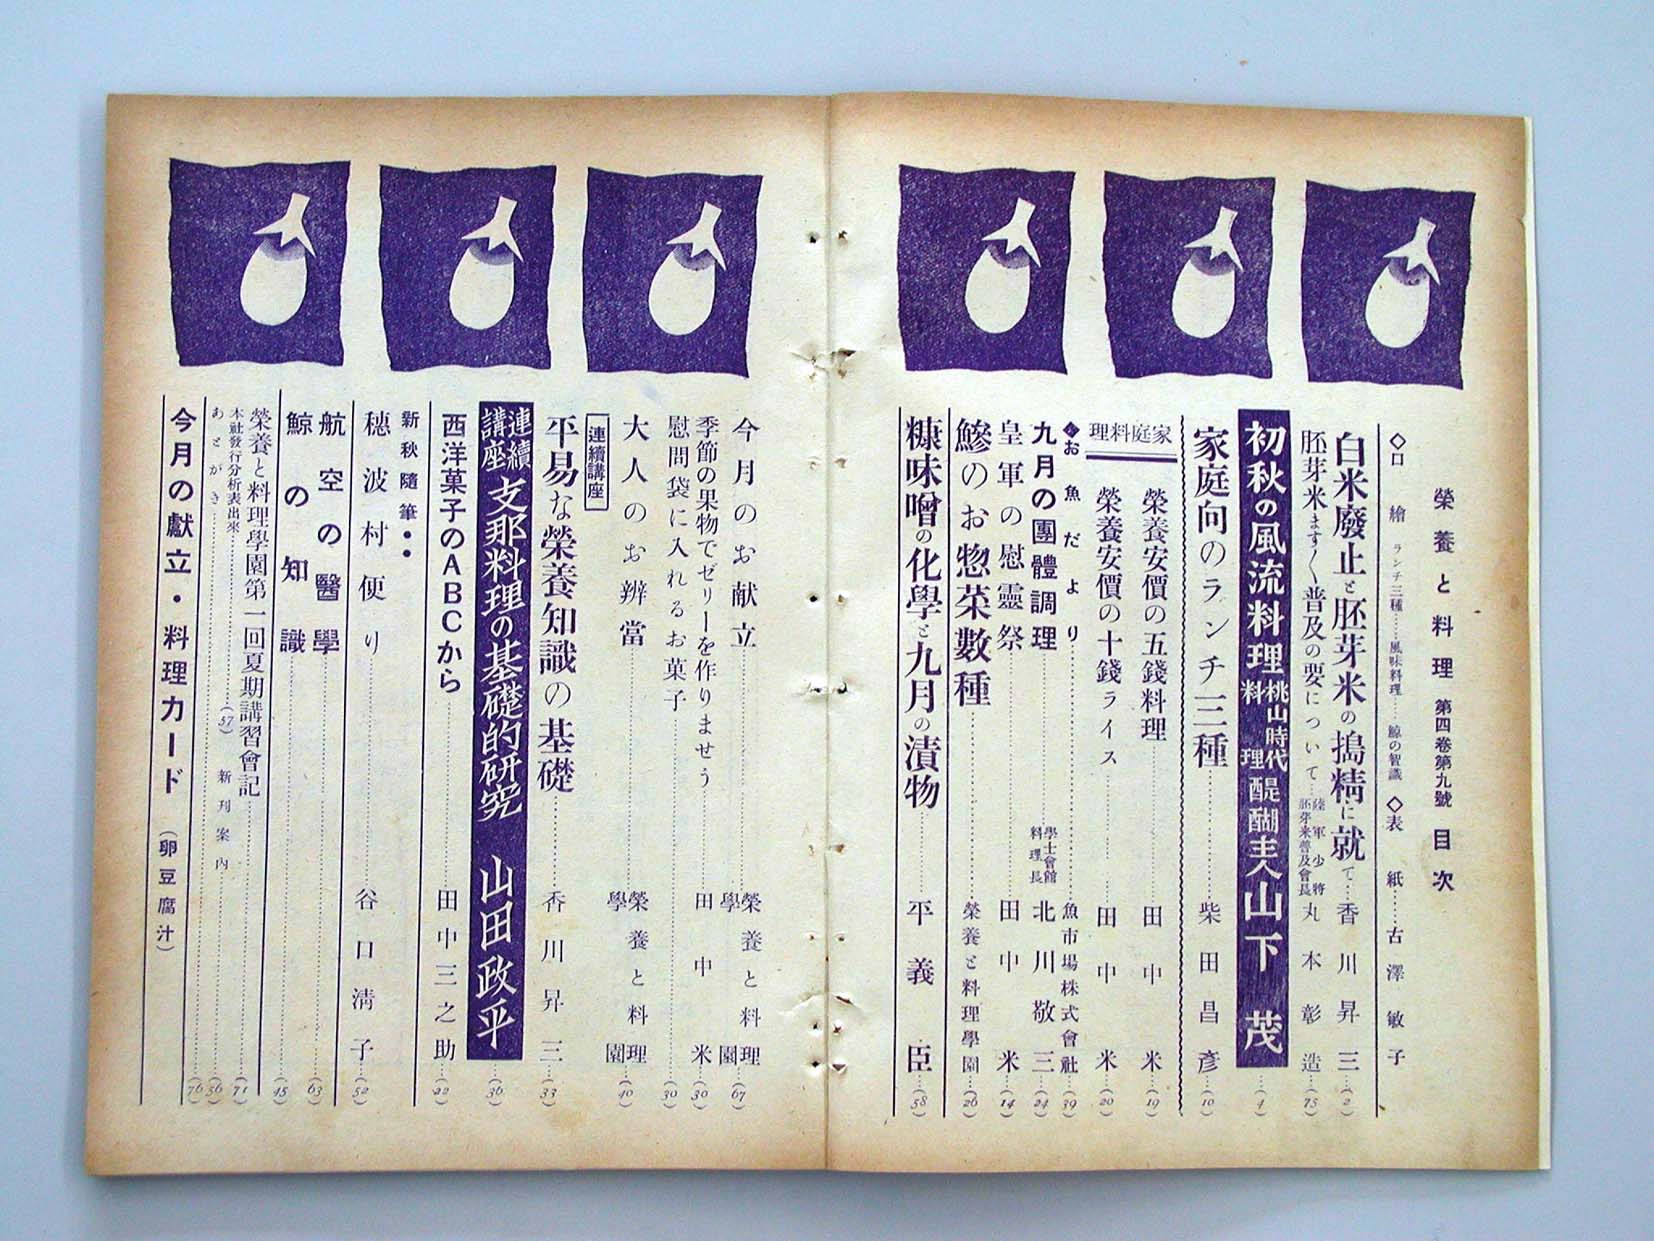 榮養と料理 第四卷第九號 目次
◇口繪 ランチ三種……風味料理……鯨の智識 ◇表紙……古澤敏子
白米廢止と胚芽米の搗精に就て…香川昇三…(2)
胚芽米ます〱普及の要について…陸軍少將 胚芽米普及會長 丸本彰造…(75)
初秋の風流料理 桃山時代料理 醍醐主人 山下茂…(4)
家庭向のランチ三種……柴田昌彥…(10)
家庭料理
榮養安價の五錢料理……田中米…(19)
榮養安價の十錢ライス……田中米…(20)
◆お魚だより……魚市場株式會社…(39)
九月の團體調理 學士會館料理長 北川敬三…(24)
皇軍の慰靈祭……田中米…(14)
鯵のお惣菜數種……榮養と料理學園…(26)
糠味噌の化學と九月の漬物 平義臣…(58)
今月のお献立……榮養と料理學園…(67)
季節の果物でゼリーを作りませう……田中米…(30)
慰問袋に入れるお菓子……(30)
大人のお辨當……榮養と料理學園…(40)
連續講座
平易な榮養知識の基礎……香川昇三…(33)
連續講座 支那料理の基礎的研究 山田政平…(36)
西洋菓子のABCから……田中三之助…(22)
新秋隨筆・・
穗波村便り 谷口淸子…(52)
航空の醫學……(63)
鯨の知識……(45)
榮養と料理學園第一回夏期講習會記……(71)
本社發行分析表出來……(57) 新刊案內……(56)
あとがき……(76)
今月の獻立・料理カード (卵豆腐汁)